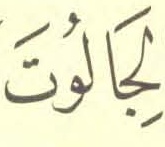 لِجَالُوْتَ